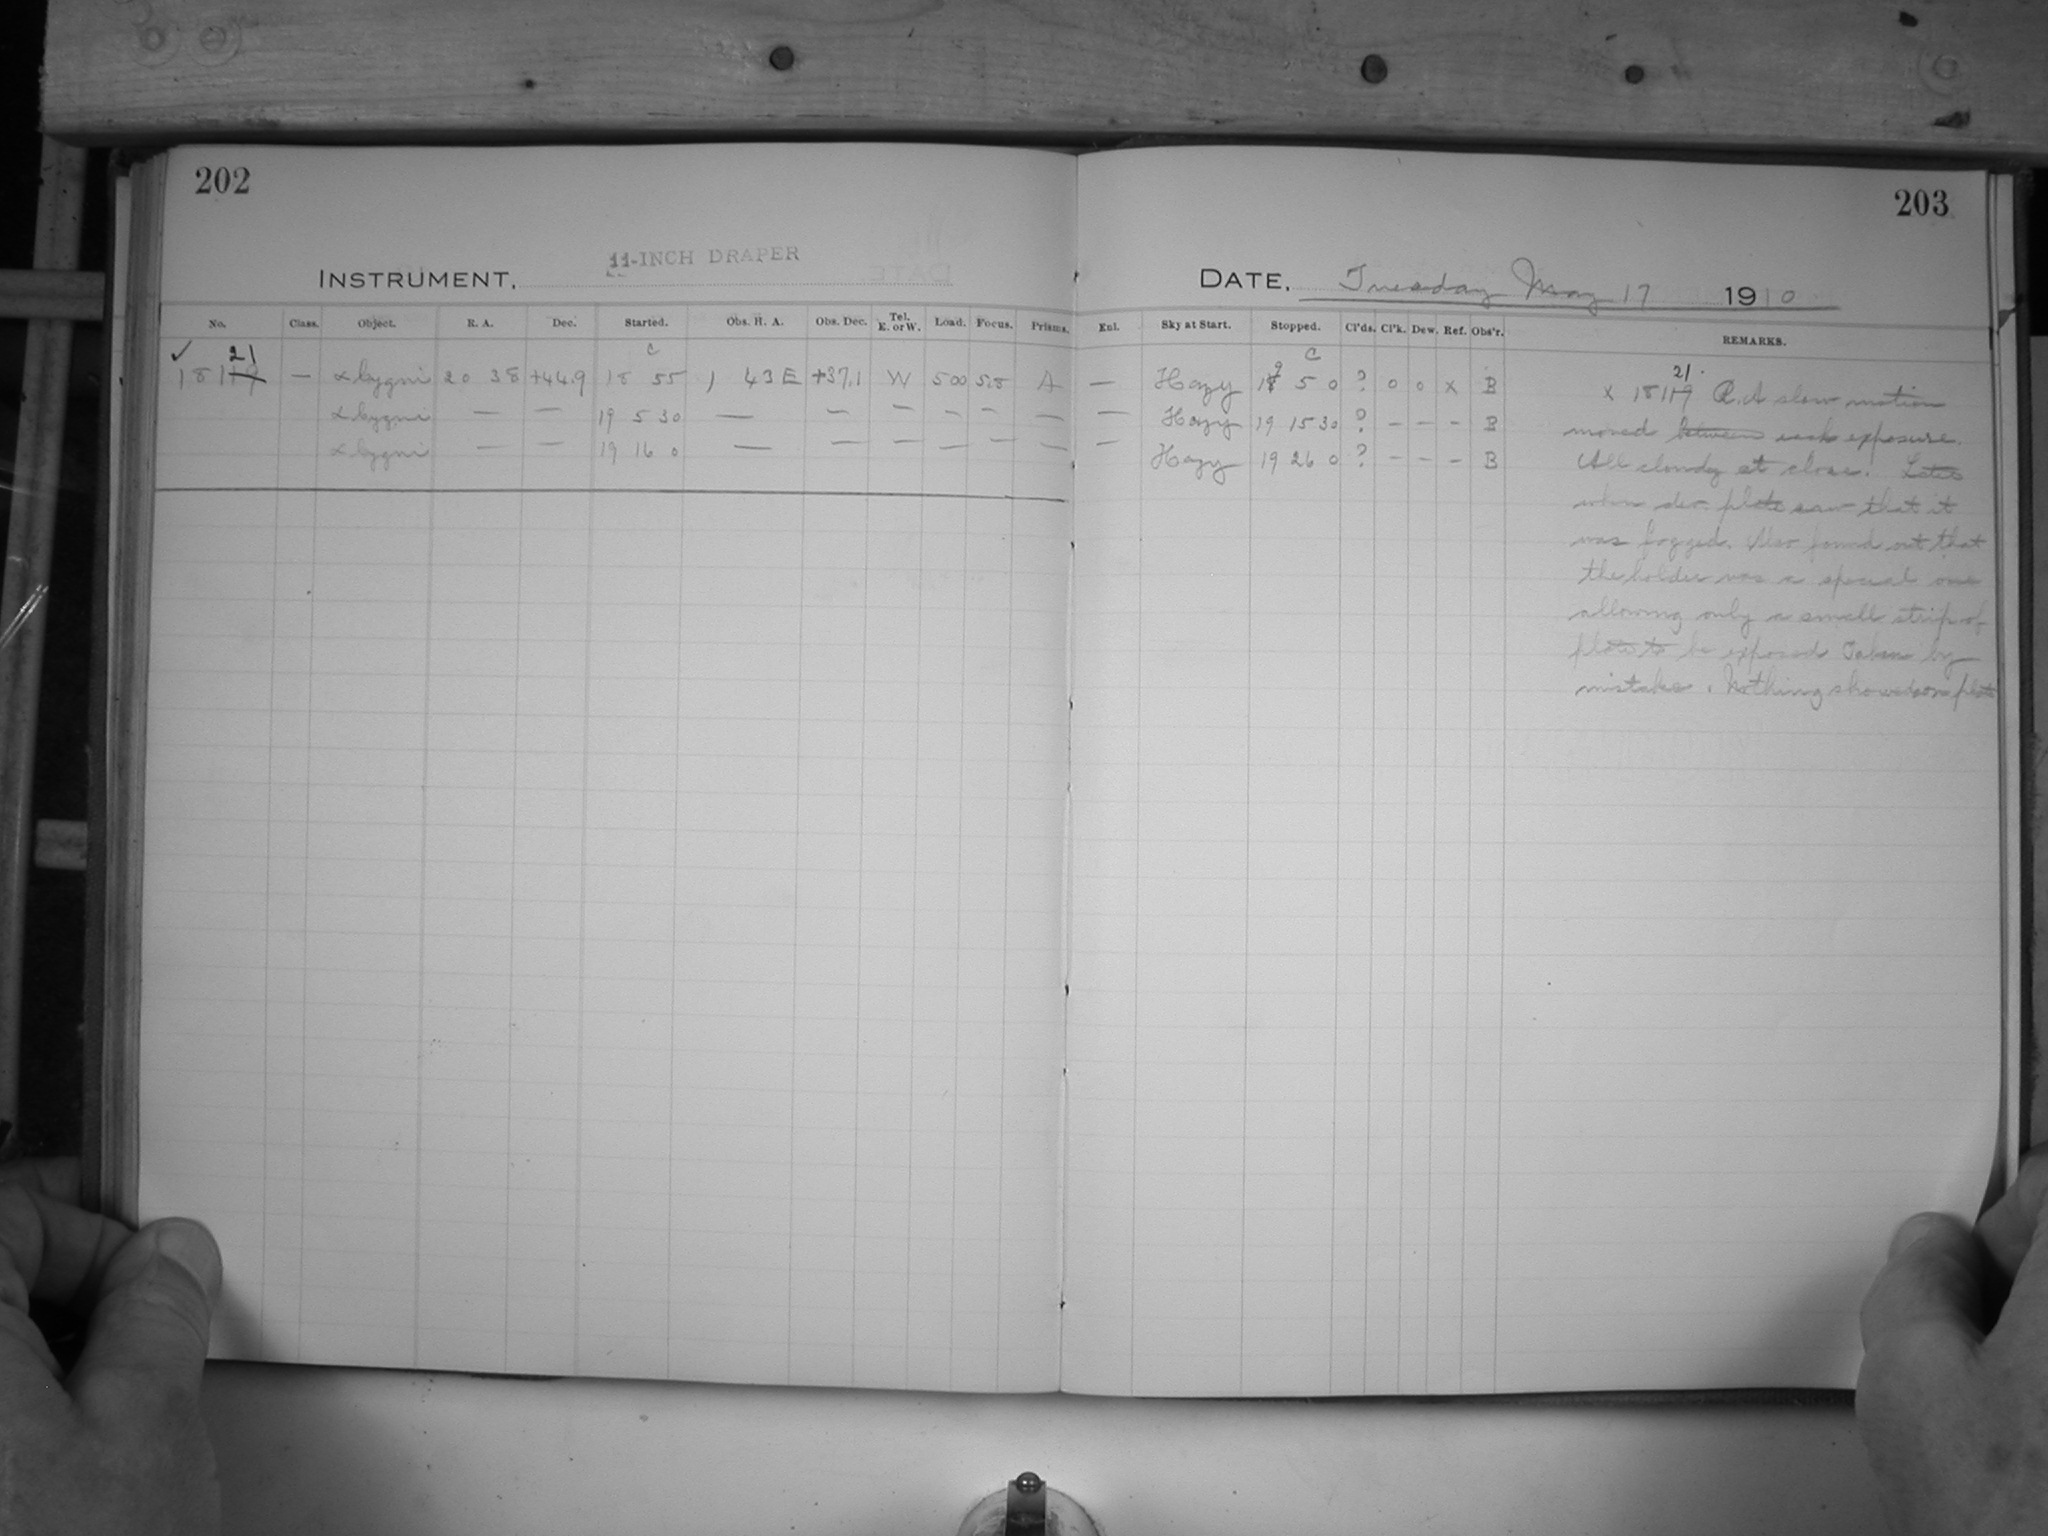 202
11-INCH DRAPER
INSTRUMENT.
No. Class. Object. R. A. Dec. Started. Obs. H. A. Obs. Dec. Tel. E. or W. Load. Focus. Prisms.
✓ 21 c
18119 — α Cygni 20 38 +44.9 18 55 1 43 E +37.1 W 500 5.8 A
α Cygni — — 19 5 30 — — — — — —
α Cygni — — 19 16 0 — — — — — —
203
DATE. Tuesday May 17 1910
Enl. Sky at Start. Stopped. Cl'ds. Cl'k. Dew. Ref. Obs'r. REMARKS.
9 c
— Hazy 18 5 0 ? 0 0 x B
— Hazy 19 15 30 ? – – – B
— Hazy 19 26 0 ? – – – B
21.
x 18119 R.A slow motion
moved between each exposure.
All cloudy at close. Later
when dev. plate saw that it
was fogged. Also found out that
the holder was a special one
allowing only a small strip of
plate to be exposed Taken by
mistake. Nothing showed on plate